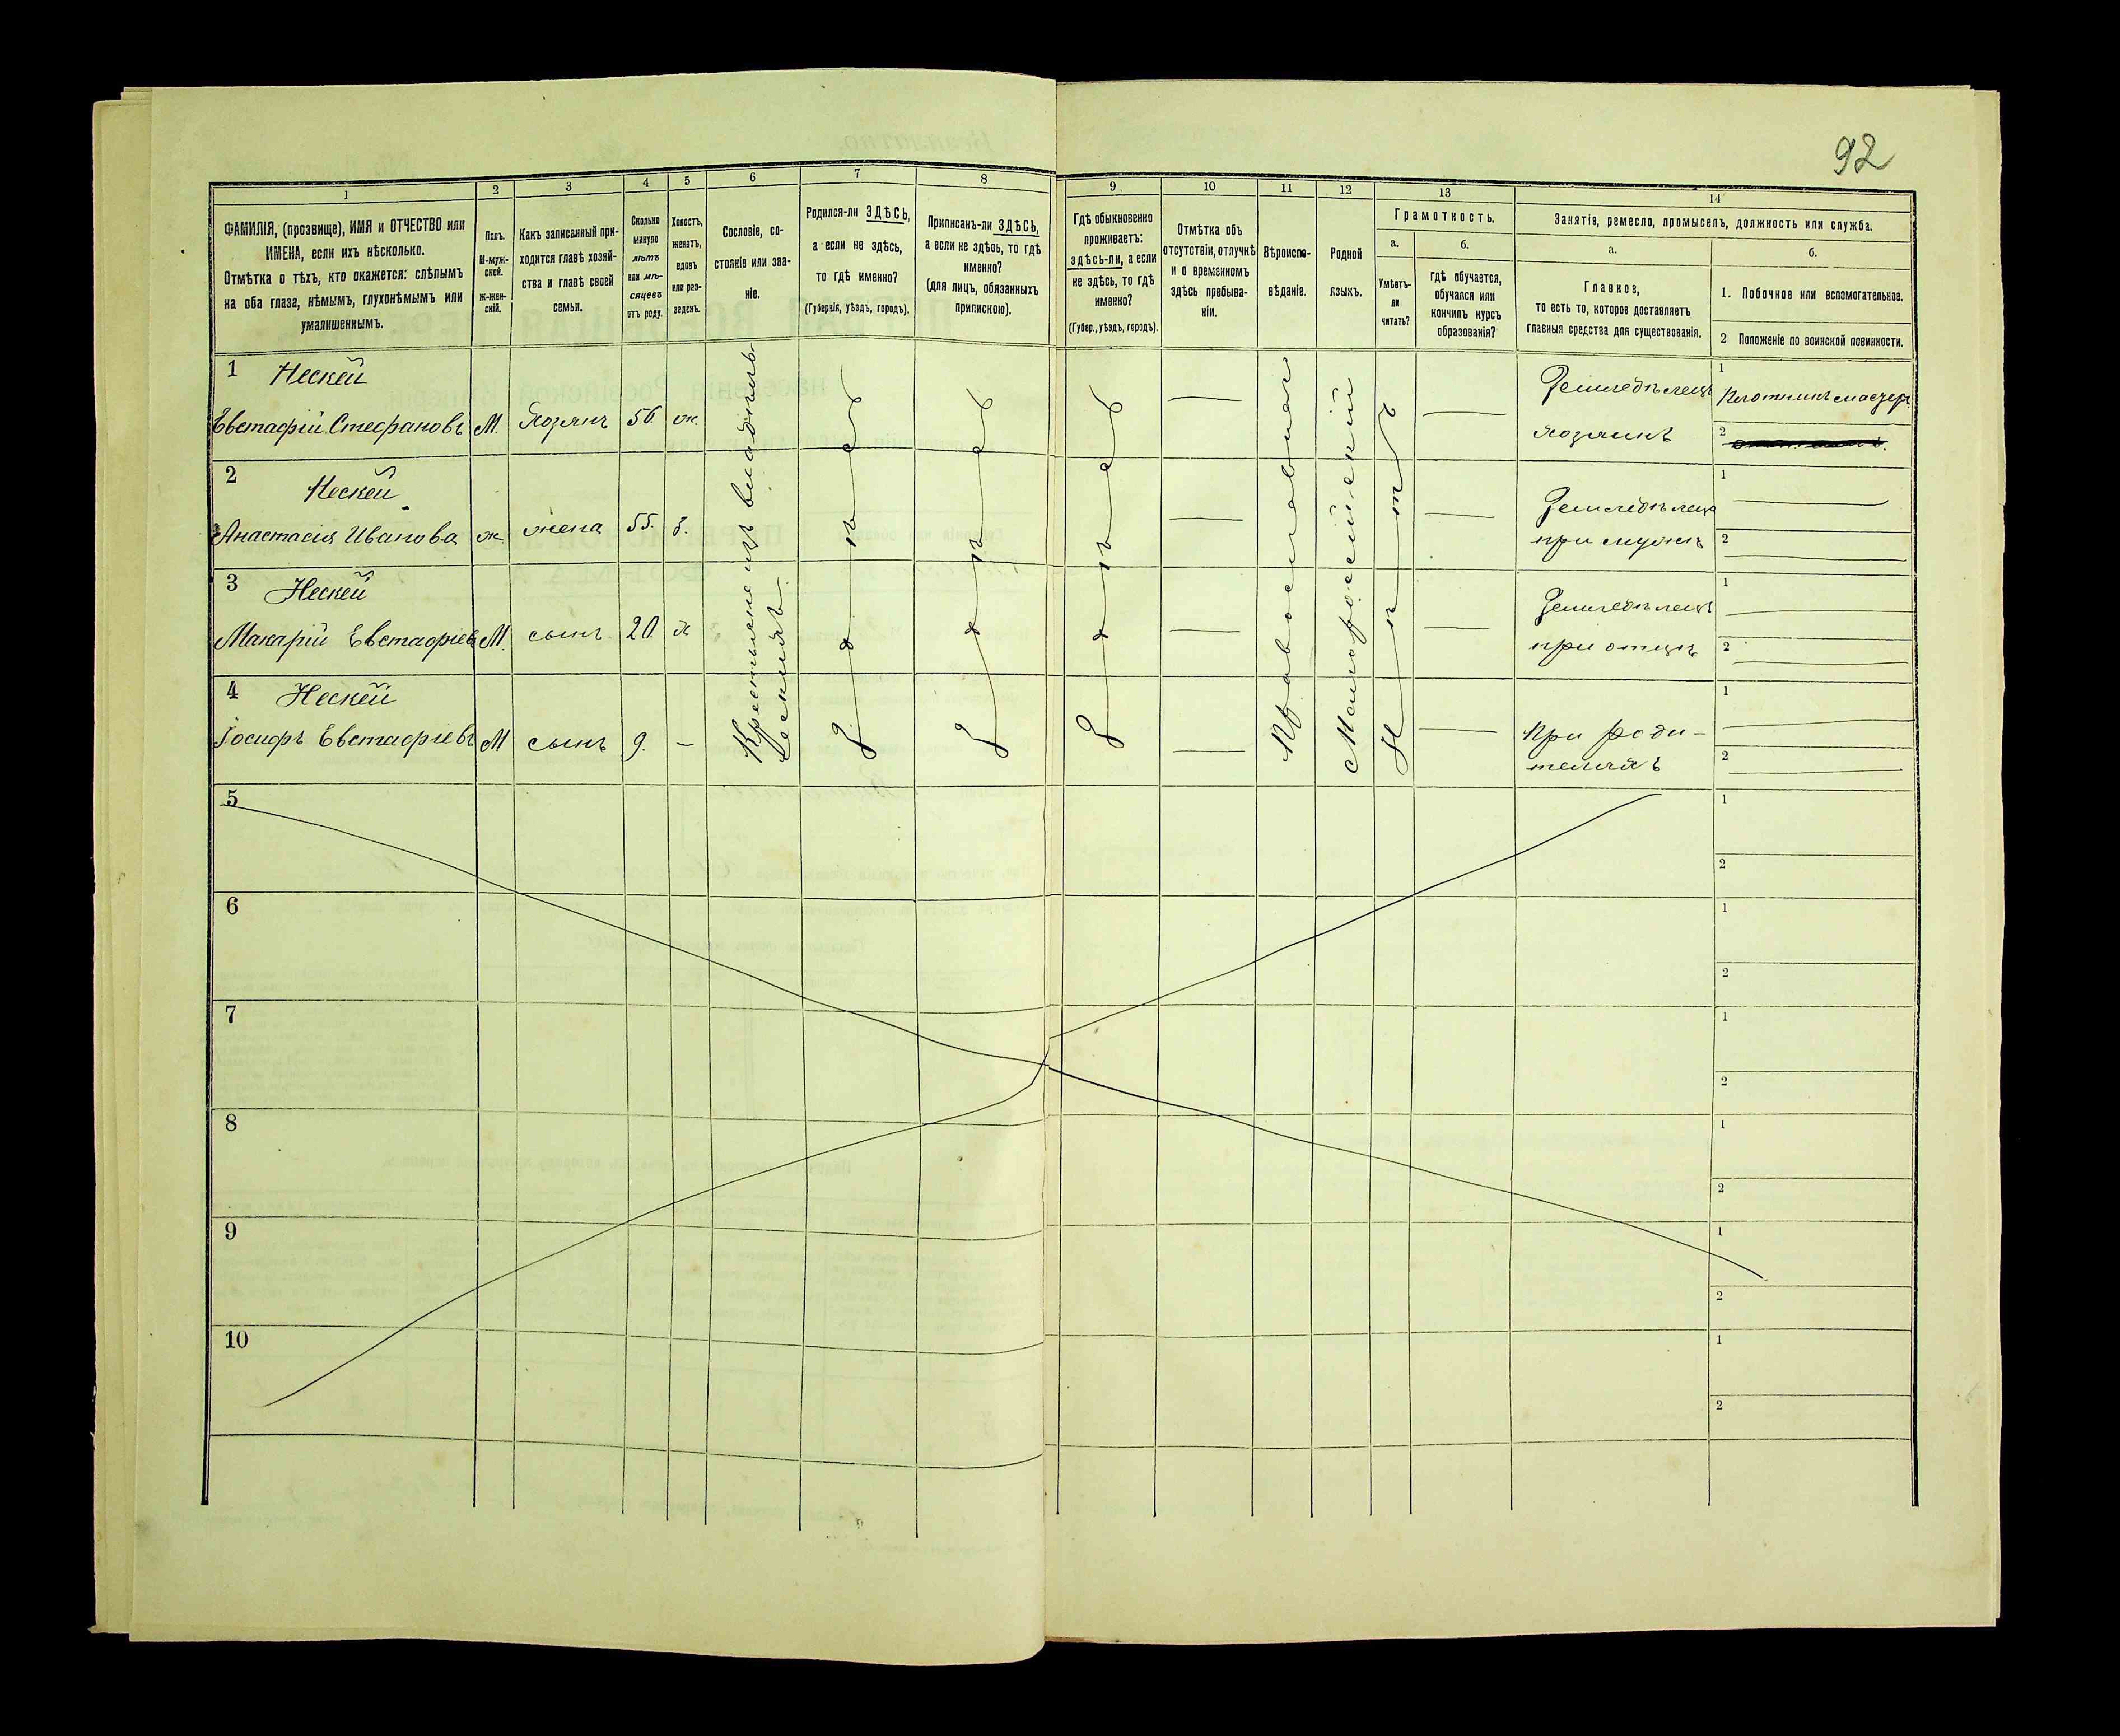 92
1
2
3
4
5
6
7
8
9
10
11
12
13
14
ФАМИЛІЯ, (прозвище), ИМЯ и ОТЧЕСТВО или
ИМЕНА, если ихъ нѣсколько.
Отмѣтка о тѣхъ, кто окажется: слѣпымъ
на оба глаза, нѣмымъ, глухонѣмымъ или
умалишеннымъ.
Полъ.
М-муж-
ской.
Ж-жен-
скій.
Какъ записанный при-
ходится главѣ хозяй-
ства и главѣ своей
семьи.
Сколько
минуло
лѣтъ
или мѣ-
сяцевъ
отъ роду.
Холостъ,
женатъ,
вдовъ
или раз-
веденъ.
Сословіе, со-
стояніе или зва-
ніе.
Родился-ли ЗДѢСЬ,
а если не здѣсь,
то гдѣ именно?
(Губернія, уѣздъ, городъ).
Приписанъ-ли ЗДѢСЬ,
а если не здѣсь, то гдѣ
именно?
(для лицъ, обязанныхъ
припискою).
Гдѣ обыкновенно
проживаетъ:
здѣсь-ли, а если
не здѣсь, то гдѣ
именно?
(Губер., уѣздъ, городъ).
Отмѣтка объ
отсутствіи, отлучкѣ
и о временномъ
здѣсь пребыва-
ніи.
Вѣроиспо-
вѣданіе.
Родной
языкъ.
Грамотность.
а.
Умѣетъ-
ли
читать?
б.
гдѣ обучается,
обучался или
кончилъ курсъ
образованія?
Занятія, ремесло, промыселъ, должность или служба.
а.
Главное,
то есть то, которое доставляетъ
главныя средства для существованія.
б.
1. Побочное или вспомогательное.
2 Положеніе по воинской повинности.
1 Нескей
Евстафій Стефановъ М. Хозяинъ 56. ж.
Земледѣлецъ
хозяинъ
1
Плотникъ мастер.
2
2 Нескей
Анастасія Иванова ж жена 55. з.
Земледѣлецъ
при мужѣ
1
2
3 Нескей
Макарій Евстафіевъ М. сынъ 20 х
Земледѣлецъ
при отцѣ
1
2
4 Нескей
Іосифъ Евстафіевъ М сынъ 9. –
При роди-
теляхъ
1
2
Крестьяне изъ владѣльч-
ескихъ
Здѣсь
Здѣсь
Здѣсь
Православное
Малороссійскій
Нѣтъ
5
1
2
6
1
2
7
1
2
8
1
2
9
1
2
10
1
2